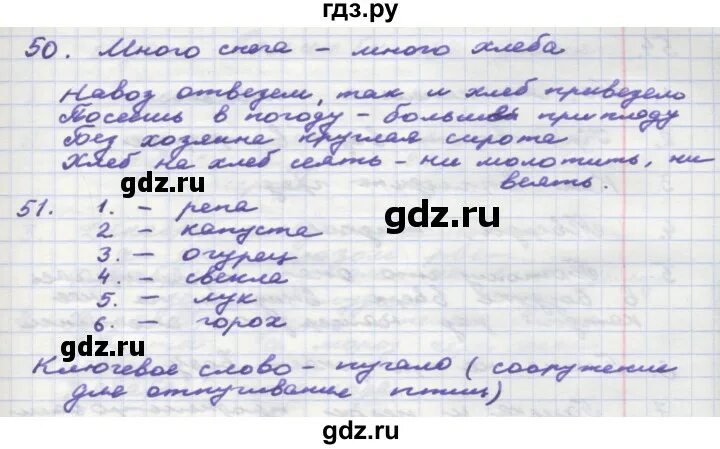 гдз.ру
50. Много снега – много хлеба
Навоз отвезем, так и хлеб привезело
Посеешь в погоду – больше приплоду
Без хозяина круглая сирота
Хлеб на хлеб сеять – ни молотить, ни
веять.
gdz.ru
gdz.ru
51. 1. – репа
2 – капуста
3. – огурец
4. – свекла
5. – лук
6. – горох
gdz.ru
Ключевое слово – пугало (сооружение
для отпугивание птиц)
gdz.ru